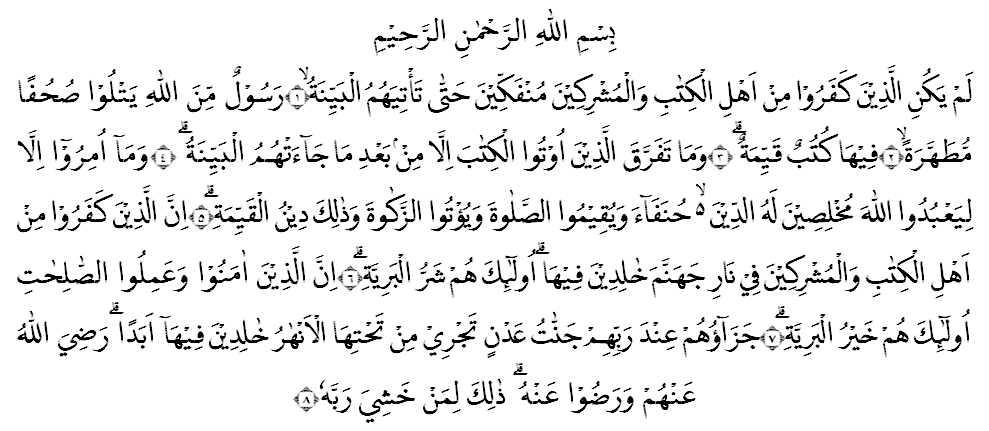 بِسْمِ اللهِ الرَّحْمٰنِ الرَّحِيْمِ
لَمْ يَكُنِ الَّذِيْنَ كَفَرُوْا مِنْ اَهْلِ الْكِتٰبِ وَالْمُشْرِكِيْنَ مُنْفَكِّيْنَ حَتّٰى تَأْتِيَهُمُ الْبَيِّنَةُ ۙ‏﴿۱﴾ رَسُوْلٌ مِّنَ اللهِ يَتْلُوْا صُحُفًا
مُّطَهَّرَةً ۙ‏﴿۲﴾ فِيْهَا كُتُبٌ قَيِّمَةٌ ؕ‏﴿۳﴾ وَمَا تَفَرَّقَ الَّذِيْنَ اُوْتُوا الْكِتٰبَ اِلَّا مِنْۢ بَعْدِ مَا جَآءَتْهُمُ الْبَيِّنَةُ ؕ‏﴿۴﴾ وَمَاۤ اُمِرُوْۤا اِلَّا
لِيَعْبُدُوا اللهَ مُخْلِصِيْنَ لَهُ الدِّيْنَ ۵ۙ حُنَفَآءَ وَيُقِيْمُوا الصَّلٰوةَ وَيُؤْتُوا الزَّكٰوةَ وَذٰلِكَ دِيْنُ الْقَيِّمَةِ ؕ‏﴿۵﴾ اِنَّ الَّذِيْنَ كَفَرُوْا مِنْ
اَهْلِ الْكِتٰبِ وَالْمُشْرِكِيْنَ فِيْ نَارِ جَهَنَّمَ خٰلِدِيْنَ فِيْهَا ؕ اُولٰٓئِكَ هُمْ شَرُّ الْبَرِيَّةِ ؕ‏﴿۶﴾ اِنَّ الَّذِيْنَ اٰمَنُوْا وَعَمِلُوا الصّٰلِحٰتِ
اُولٰٓئِكَ هُمْ خَيْرُ الْبَرِيَّةِ ؕ‏﴿۷﴾ جَزَآؤُهُمْ عِنْدَ رَبِّهِمْ جَنّٰتُ عَدْنٍ تَجْرِيْ مِنْ تَحْتِهَا الْاَنْهٰرُ خٰلِدِيْنَ فِيْهَاۤ اَبَدًا ؕ رَضِيَ اللهُ
عَنْهُمْ وَرَضُوْا عَنْهُ ؕ ذٰلِكَ لِمَنْ خَشِيَ رَبَّهٗ ‏﴿۸﴾